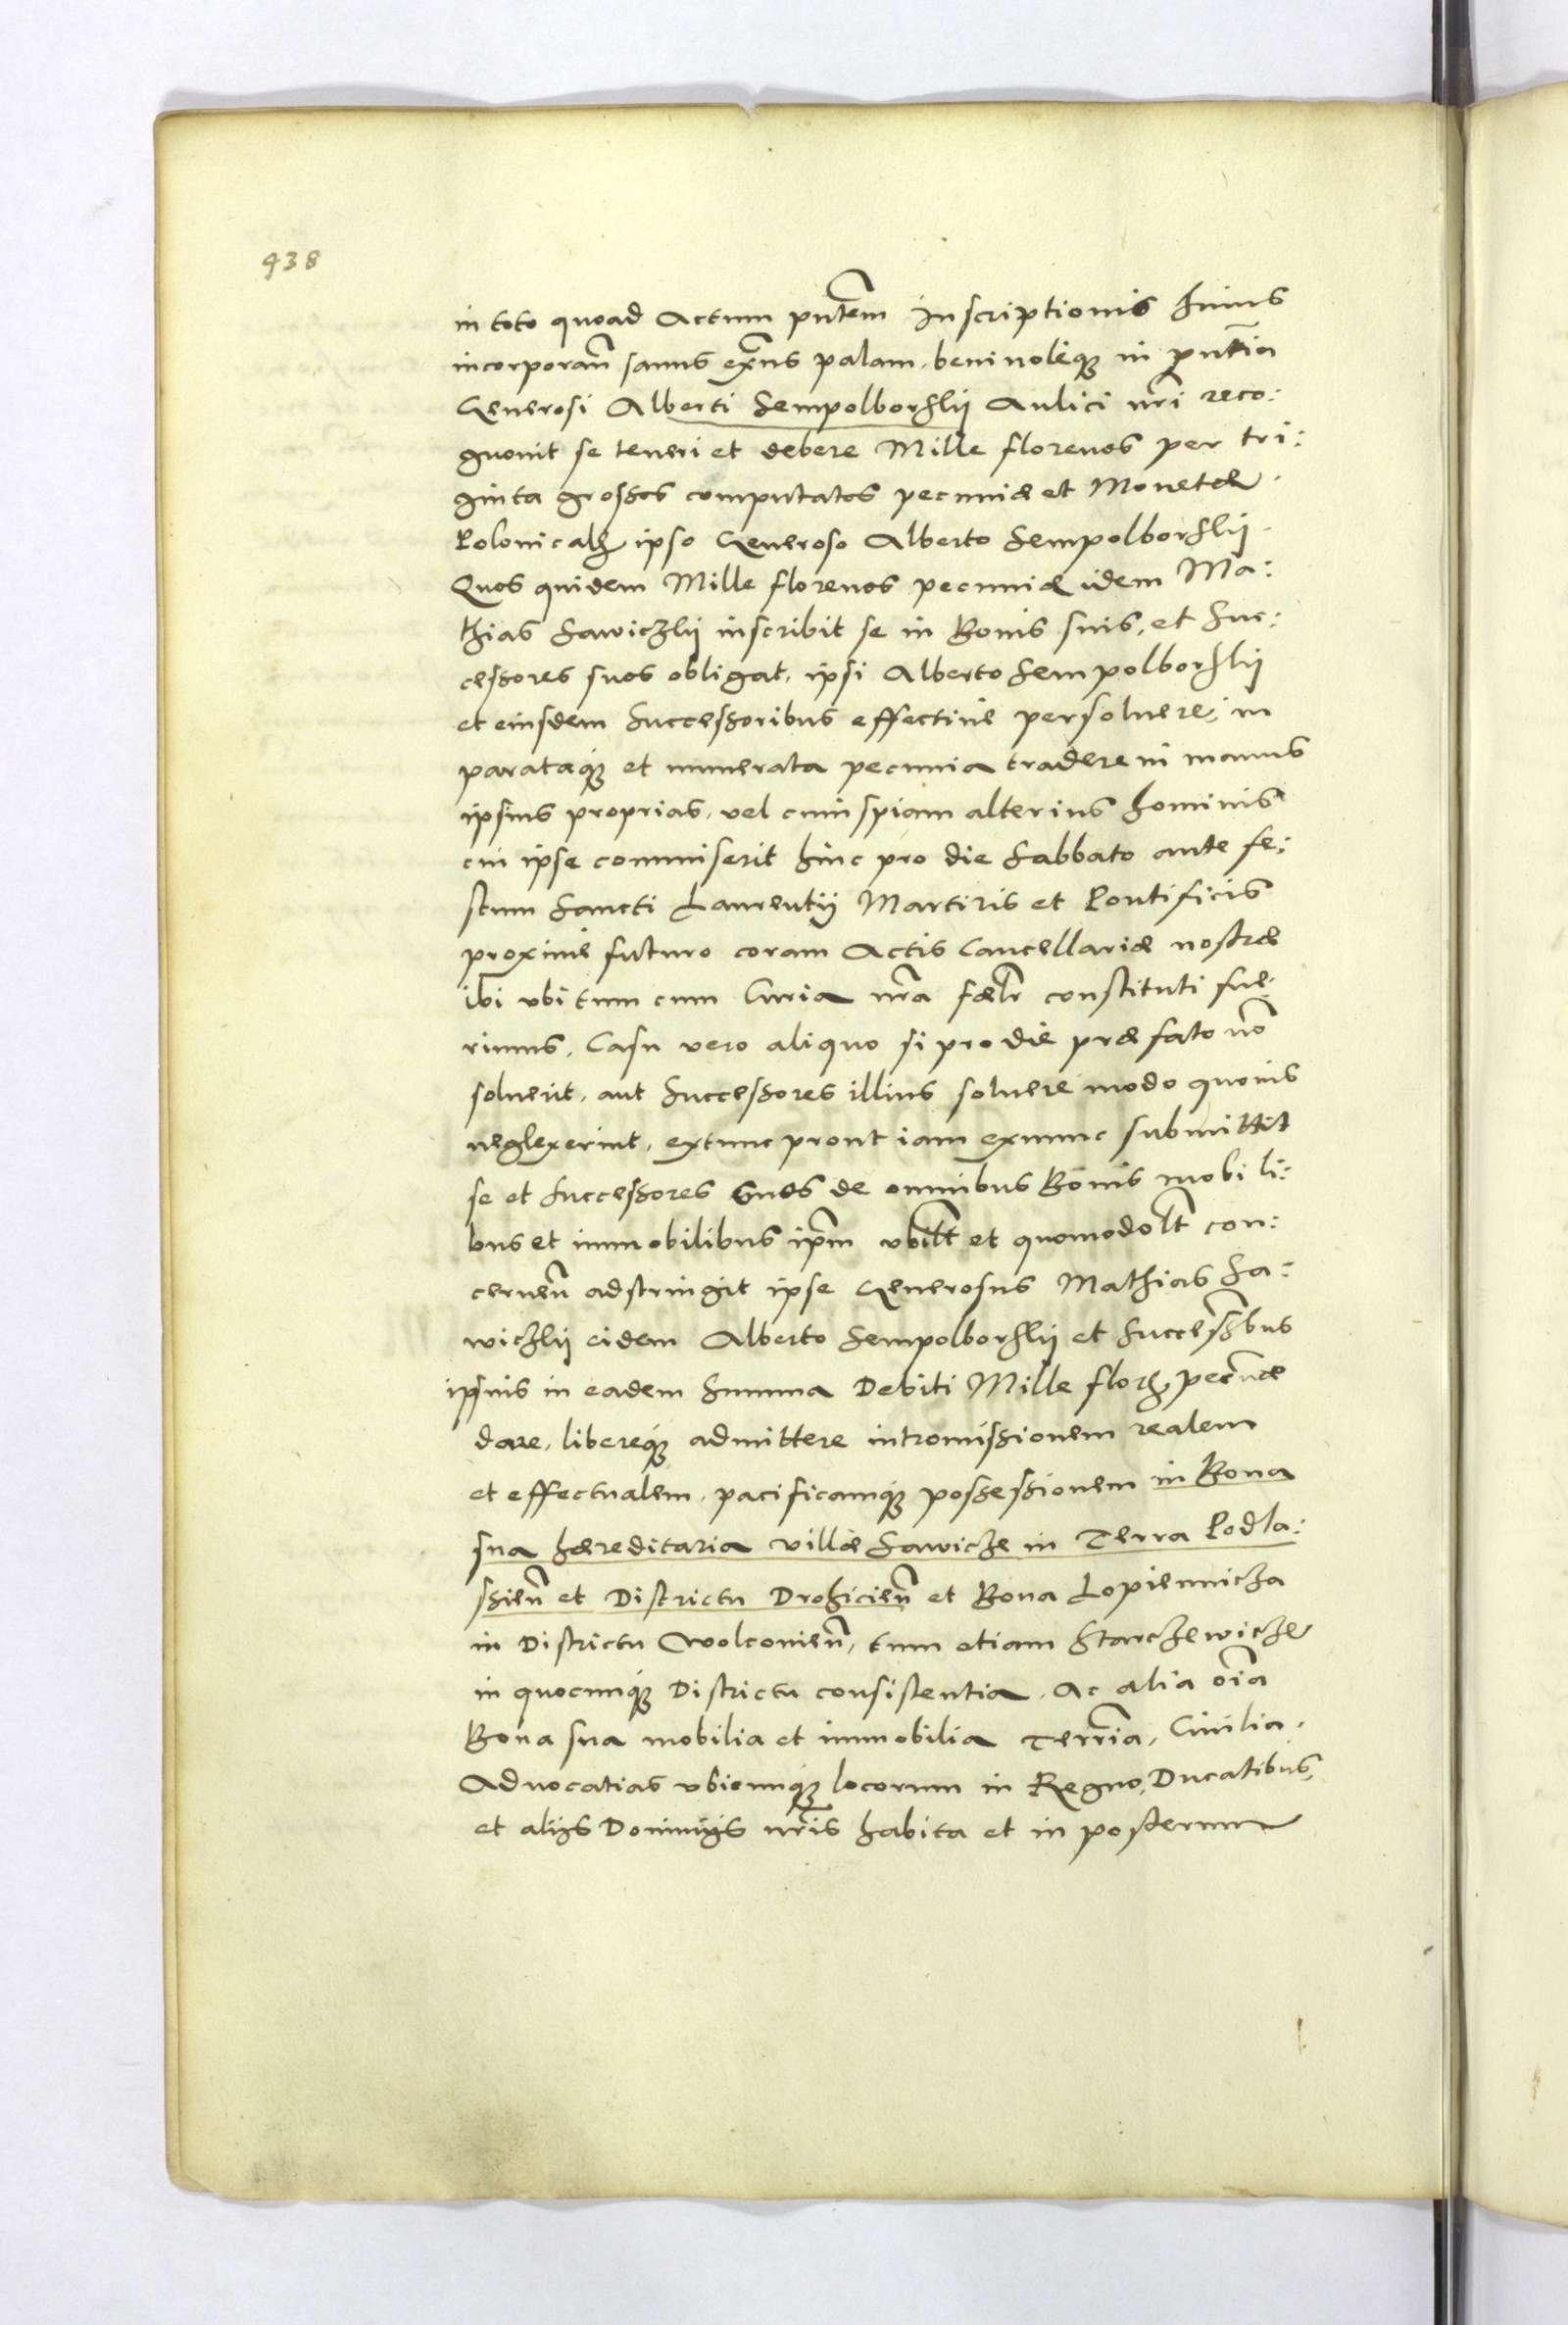 938
in toto quoad Actum pñtem Inscriptionis huius
incorporañ sanus exñs palam, beniuoleq3 in pñtia
Generosi Alberti Sempolborskij Aulici nri reco:
gnouit se teneri et debere Mille florenos per tri:
ginta grossos computatos pecuniæ et Monetæ
Polonicalis ipso Generoso Alberto Sempolborskij.
Quos quidem Mille florenos pecuniæ idem Ma:
thias Sawiczkij inscribit se in Bonis suis, et Suc:
cessores suos obligat, ipsi Alberto Sempolborskij
et eiusdem Successoribus effectiue persoluere, in
parataq3 et numerata pecunia tradere in manus
ipsius proprias, vel cuiuspiam alterius hominis
cui ipse commiserit hinc pro die Sabbato ante fe:
stum Sancti Laurentij Martiris et Pontificis
proxime futuro coram Actis Cancellariæ nostræ
ibi vbi tum cum Curia nra fælr constituti fue:
rimus. Casu vero aliquo si pro die præfato nõ
soluerit, aut Successores illius soluere modo quouis
neglexerint, extunc prout iam exnunc submittit
se et Successores suos de omnibus Bonis mobili:
bus et immobilibus ipm vbilt et quomodolt con:
cerneñ adstringit ipse Generosus Mathias Sa:
wiczkij eidem Alberto Sempolborskij et Successbus
ipsius in eadem Summa Debiti Mille flor. pecuñæ
dare, libereq3 admittere intromissionem realem
et effectualem, pacificamq3 possessionem in Bona
sua hæreditaria villæ Sawicze in Terra Podla:
ssieñ et Districtu Drohicieñ et Bona Lopiennicza
in Districtu Wolconieñ, tum etiam Starczewicze
in quocunq3 Districtu consistentia. Ac alia oĩa
Bona sua mobilia et immobilia Terria, Ciuilia.
Aduocatias vbicunq3 locorum in Regno, Ducatibus,
et alijs Dominijs nris habita et in posterum